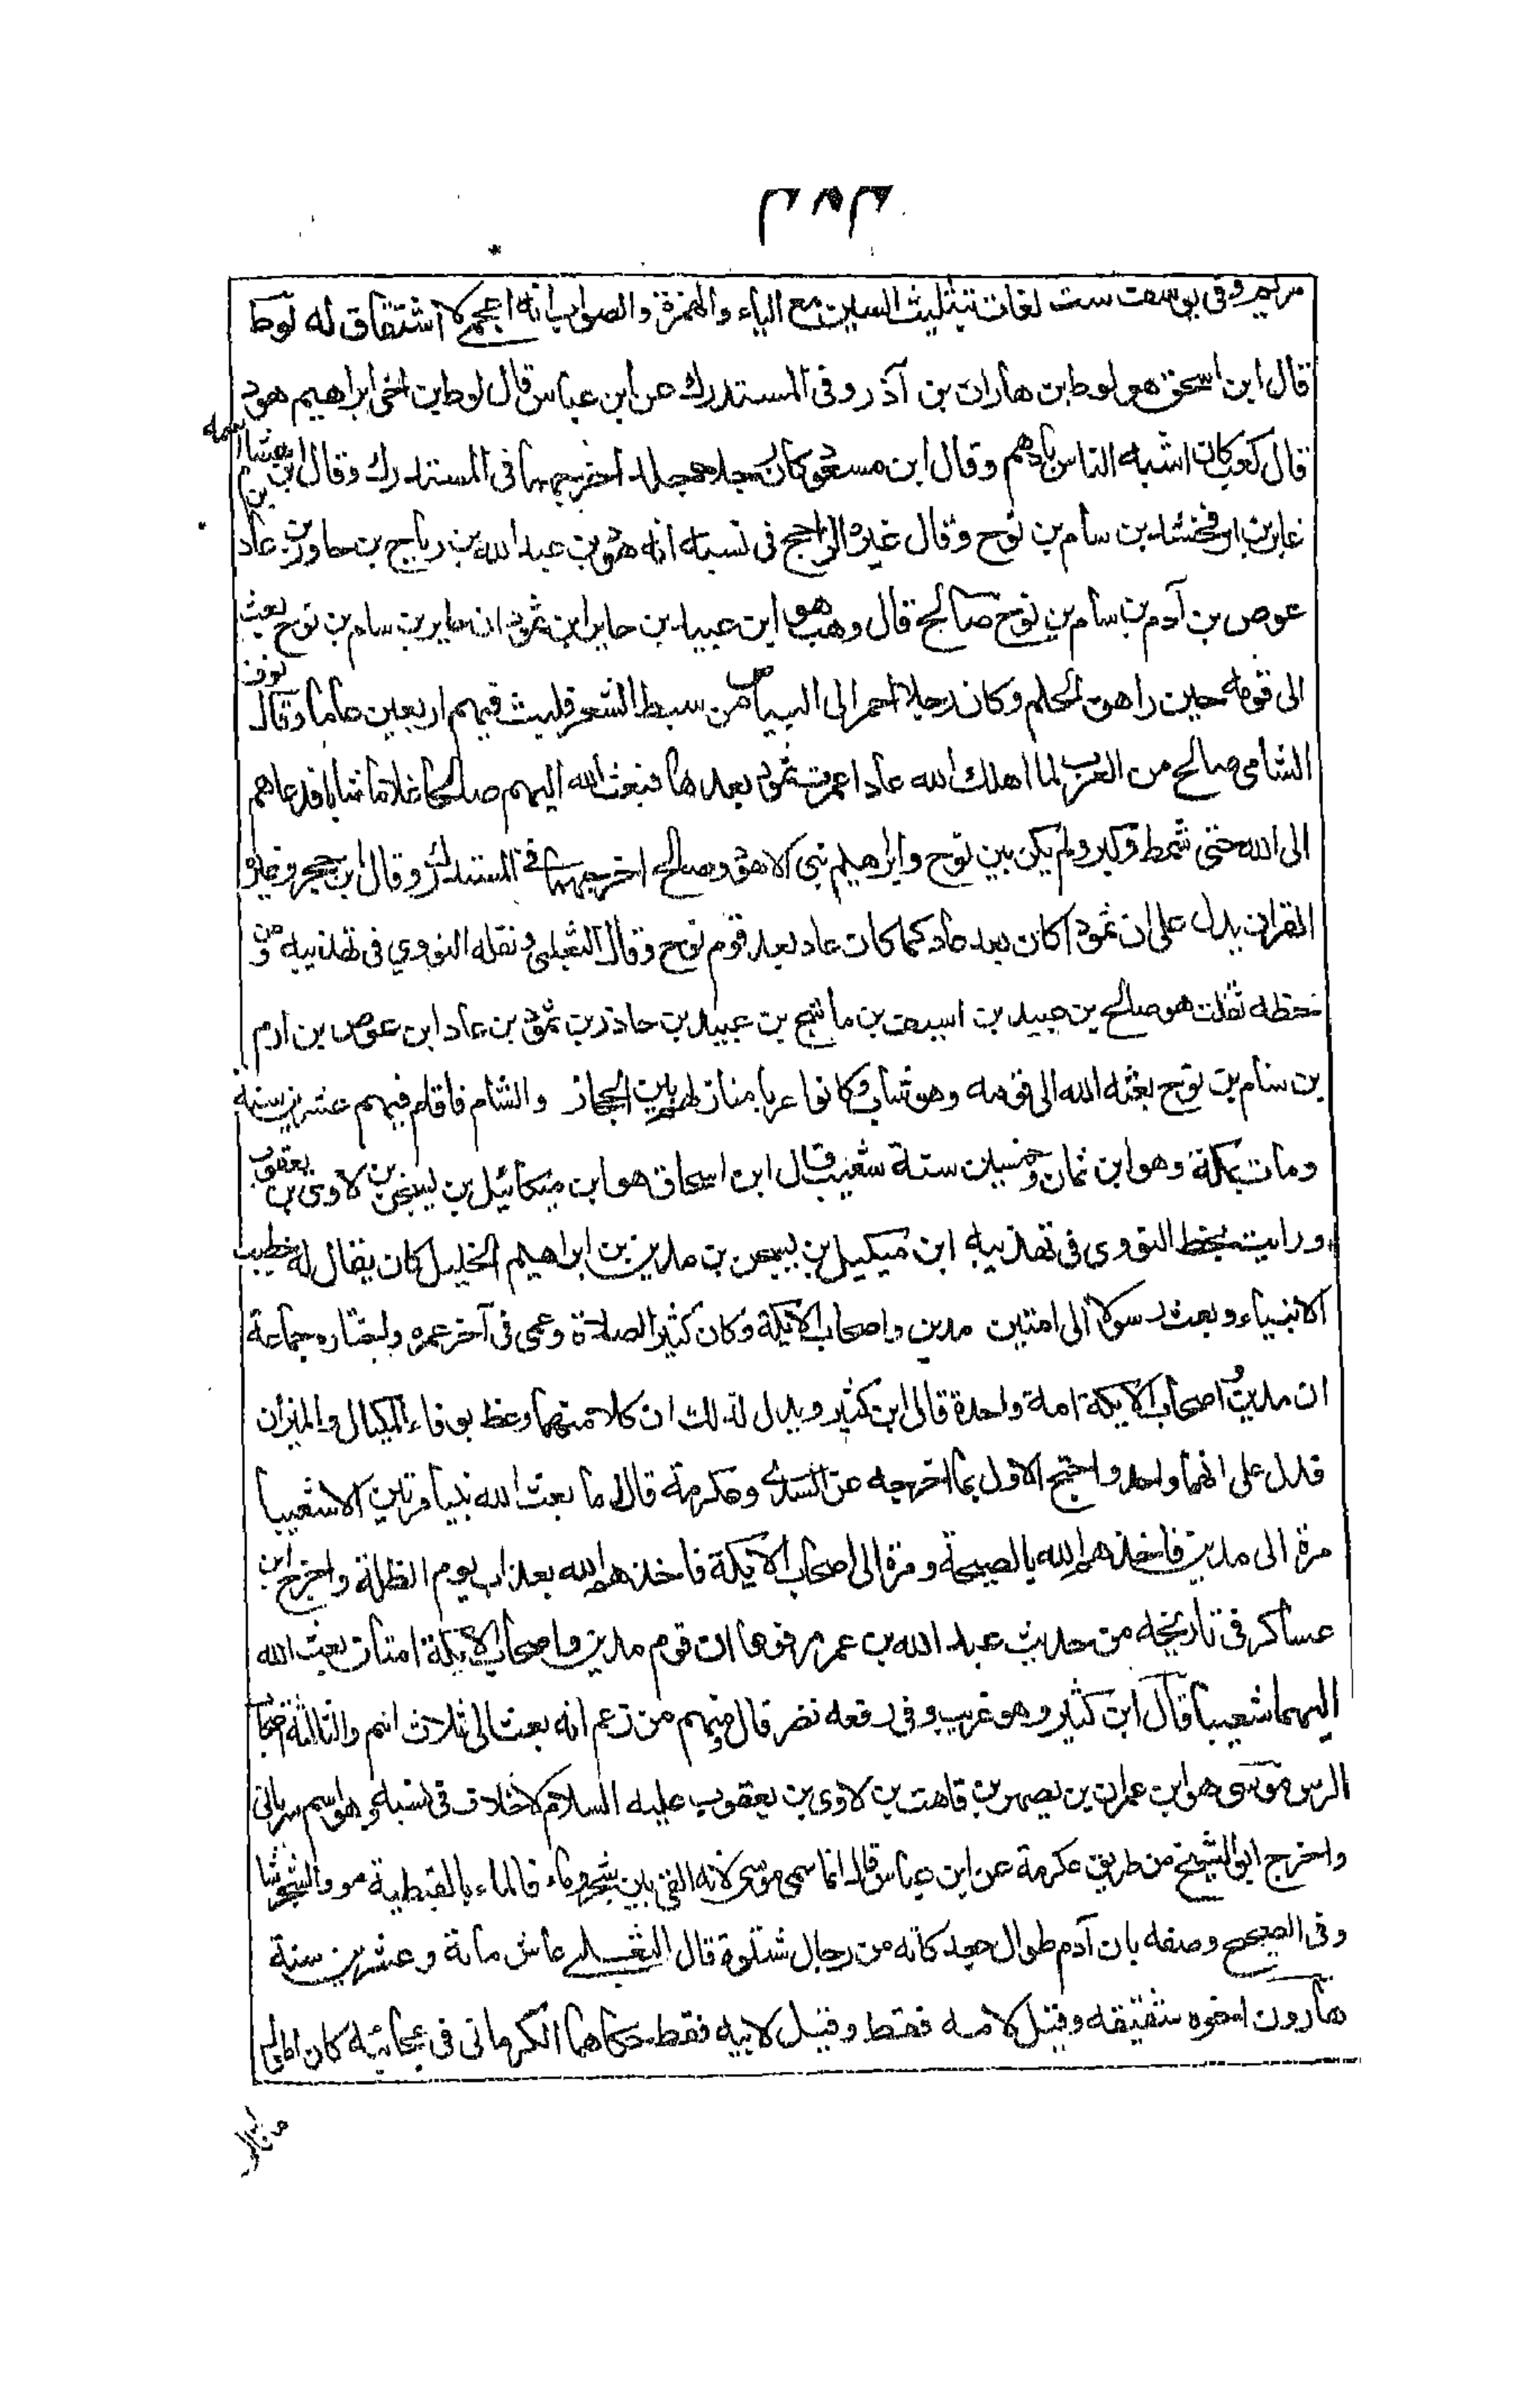 ٣٨٣
مريم وفى يوسف ست لغات تبثليث السين مع الياء والهمزة والصواب انه اعجمى لا اشتقاق له لوط
قال ابن اسحق هو لوط بن هاران بن آذر وفى المستدرك عن ابن عباس قال لوط بن اخى ابراهيم هود
قال كعب كان اشبه الناس بادهم وقال ابن مسعود كان رجلا جلدا اخرجهما فى المستدرك وقال ابن هشام اسمه
عابر بن ارفخشد بن سام بن نوح وقال غيره الراجح فى نسبته انه هود بن عبد الله بن رباح بن حاور بن عاد
عوص بن آدم بن سام بن نوح صالح قال وهب هو ابن عبيد بن حاير ابن ثمود ان حاير بن سام بن نوح بعث
الى قومه حين راهق الحلم وكان رجلا احمر الى البياض من سبط الشعر فلبث فيهم اربعين عاما وقال نوف
الشامى صالح من العرب لما اهلك الله عادا عمرت ثمود بعدها فبعث الله اليهم صالحا غلاما شابا فدعاهم
الى الله حتى شمط وكبر ولم يكن بين نوح وابراهيم نبى الا هود وصالح اخرجهما فى المستدرك وقال ابن حجر وغيره
القران يدل على ان ثمود كان بعد عاد كما كانت عاد بعد قوم نوح وقال الثعلبى ونقله النووي فى تهذيبه ومن
خطه نقلت هو صالح بن عبيد بن اسيف بن ماشج بن عبيد بن حاذر بن ثمود بن عاد ابن عوص بن ادم
بن سام بن نوح بعثه الله الى قومه وهو شاب وكانوا عربا منازلهم بين الحجاز والشام فاقام فيهم عشرين سنة
ومات بمكة وهو ابن ثمان وخمسين سنة شعيب قال ابن اسحاق هو ابن ميكائيل بن يسجن بن لاوى بن يعقوب
ورايت بخط النووى فى تهذيبه ابن ميكيل بن يسجن بن مدين بن ابراهيم الخليل كان يقال له خطيب
الانبياء وبعث رسولا الى امتين مدين واصحاب الايكة وكان كثير الصلاة وعمى فى آخر عمره واختاره جماعة
ان مدين واصحاب الايكة امة واحدة قال ابن كثير ويدل لذلك ان كلا منهما وعظ بوفاء المكيال والميزان
فدل على انهما واحد واحتج الاول بما اخرجه عن السدى وعكرمة قالا ما بعث الله نبيا مرتين الا شعيبا
مرة الى مدين فاخذهم الله بالصيحة ومرة الى اصحاب الايكة فاخذهم الله بعذاب يوم الظلة واخرج ابن
عساكر فى تاريخه من حديث عبد الله بن عمر مرفوعا ان قوم مدين واصحاب الايكة امتان بعث الله
اليهما شعيبا قال ابن كثير وهو غريب وفى رفعه نضر قال ومنهم من زعم انه بعث الى ثلاث امم والثالثة اصحاب
الرس موسى هو ابن عمران بن يصهر بن قاهت بن لاوى بن يعقوب عليه السلام لا خلاف فى نسبه وهو اسم سريانى
واخرج ابو الشيخ من طريق عكرمة عن ابن عباس قال انما سمى موسى لانه القى بين شجر وماء فالماء بالقبطية مو والشجر شا
وفى الصحيح وصفه بان آدم طوال جعد كانه من رجال شنوة قال الثعلبى عاش مائة وعشرين سنة
هارون اخوه شقيقه وقيل لامه فقط وقيل لابيه فقط حكاهما الكرمانى فى عجائبه كان اطول
منه